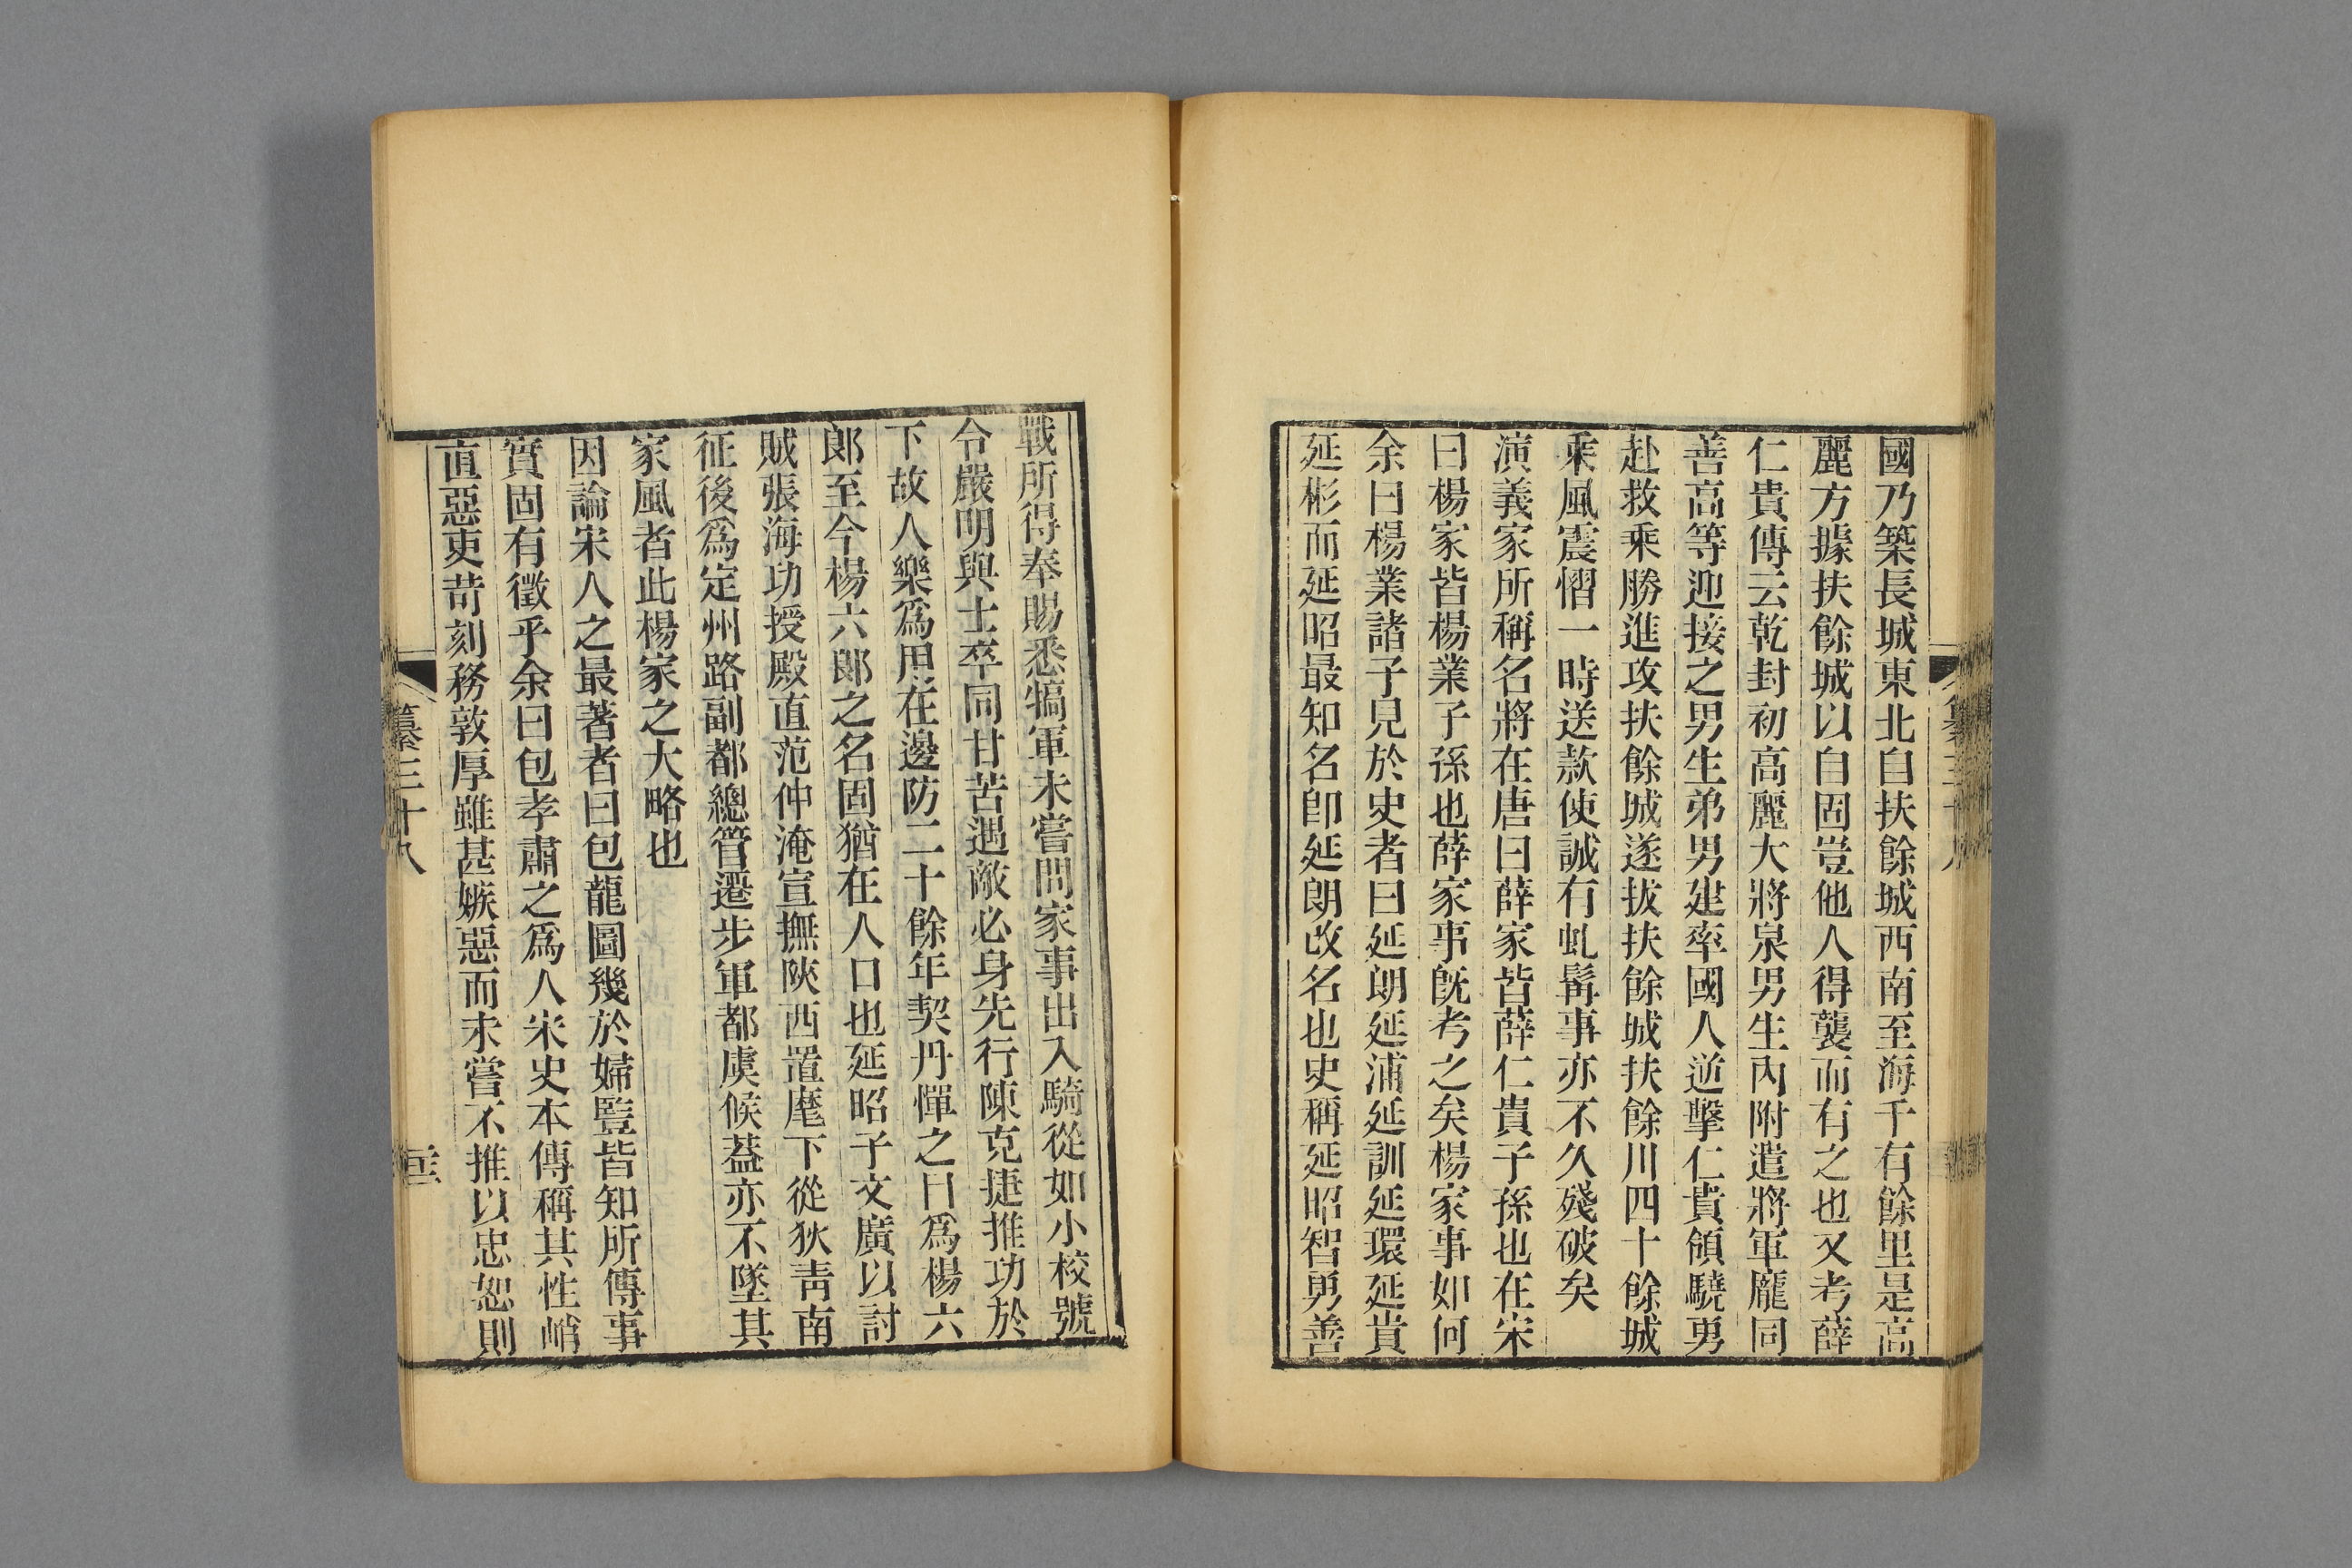 國乃築長城東北自扶餘城西南至海千有餘里是高
麗方據扶餘城以自固豈他人得襲而有之也又考薛
仁貴傳云乾封初高麗大將泉男生內附遣將軍龐同
善高等迎接之男生弟男建率國人逆擊仁貴領驍勇
赴救乘勝進攻扶餘城遂拔扶餘城扶餘川四十餘城
乘風震慴一時送款使誠有虬髯事亦不久殘破矣
演義家所稱名將在唐曰薛家皆薛仁貴子孫也在宋
曰楊家皆楊業子孫也薛家事旣考之矣楊家事如何
余曰楊業諸子見於史者曰延朗延浦延訓延環延貴
延彬而延昭最知名卽延朗改名也史稱延昭智勇善
戰所得奉賜悉犒軍未嘗問家事出入騎從如小校號
令嚴明與士卒同甘苦遇敵必身先行陳克捷推功於
下故人樂爲用在邊防二十餘年契丹憚之曰爲楊六
郞至今楊六郞之名固猶在人口也延昭子文廣以討
賊張海功授殿直范仲淹宣撫陝西置麾下從狄靑南
征後爲定州路副都總管遷步軍都虞候葢亦不墜其
家風者此楊家之大略也
因論宋人之最著者曰包龍圖幾於婦豎皆知所傳事
實固有徵乎余曰包孝肅之爲人宋史本傳稱其性峭
直惡吏苛刻務敦厚雖甚嫉惡而未嘗不推以忠恕則
纂三十八